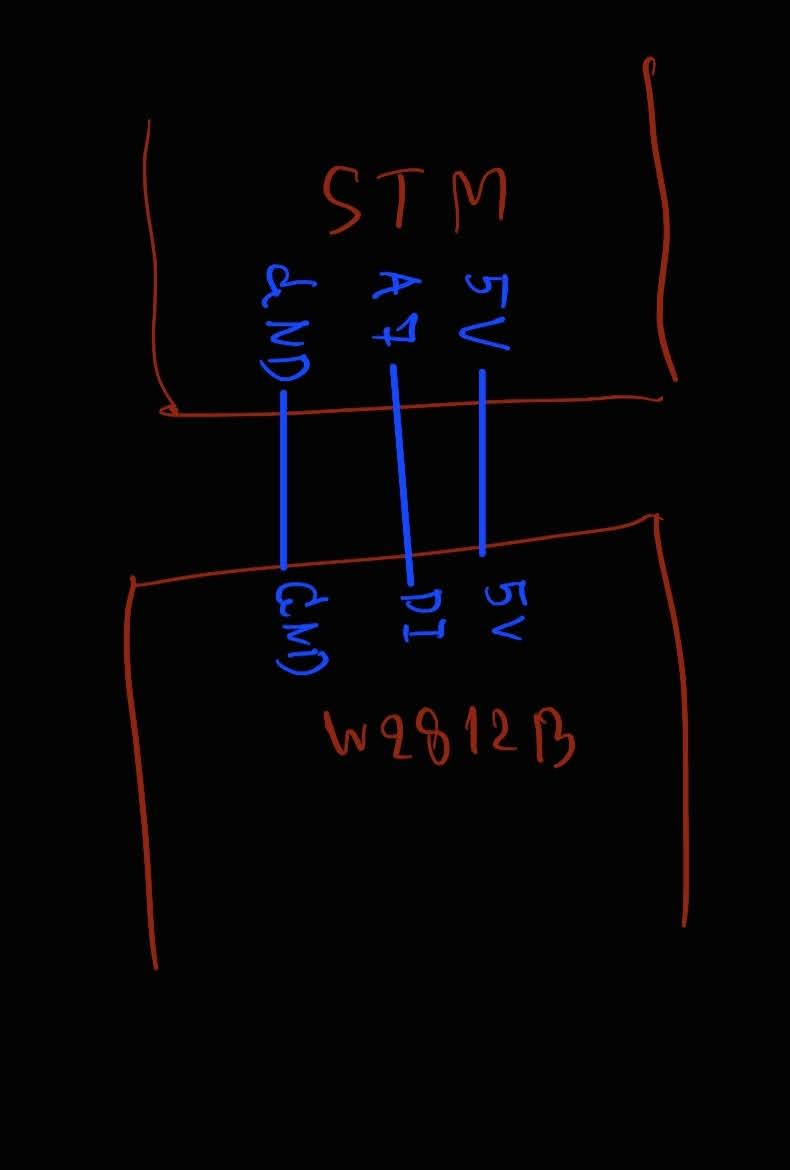 STM
GND A7 5V
GND DI 5V
W2812B